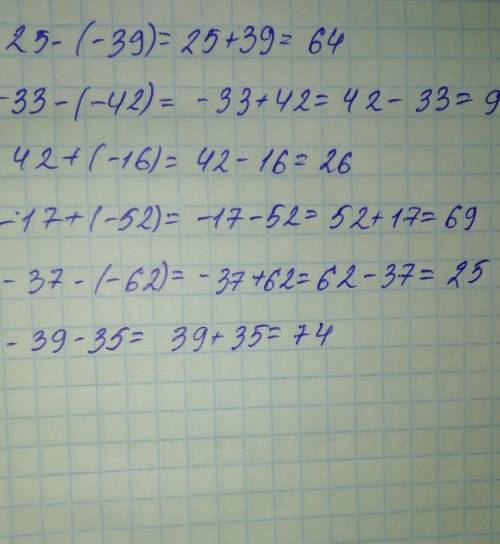 25-(-39)=25+39=64
-33-(-42)= -33+42=42-33=9
42+(-16)= 42-16=26
-17+(-52)= -17-52=52+17=69
-37-(-62)=-37+62=62-37=25
-39-35= 39+35=74